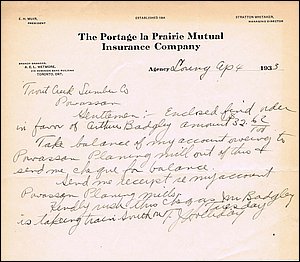 E. H. MUIR, PRESIDENT
ESTABLISHED 1884
STRATTON WHITAKER, MANAGING DIRECTOR
The Portage la Prairie Mutual
Insurance Company
BRANCH MANAGER,
A. E. L. WETMORE,
TORONTO, ONT.
Agency Loring Ap 4 1933
Trout Creek Lumber Co
Powassan
Gentlemen:- Enclosed find order
in favor of Arthur Badgley amount
Take balance of my account oweing to
Powassan Planing Mill out of this &
send me cheque for balance.
Send me receipt re my account
Powassan Planing Mills.
Kindly rush this cheque as Mr Badgley
is taking train South on Thursday
T. J. Holliday